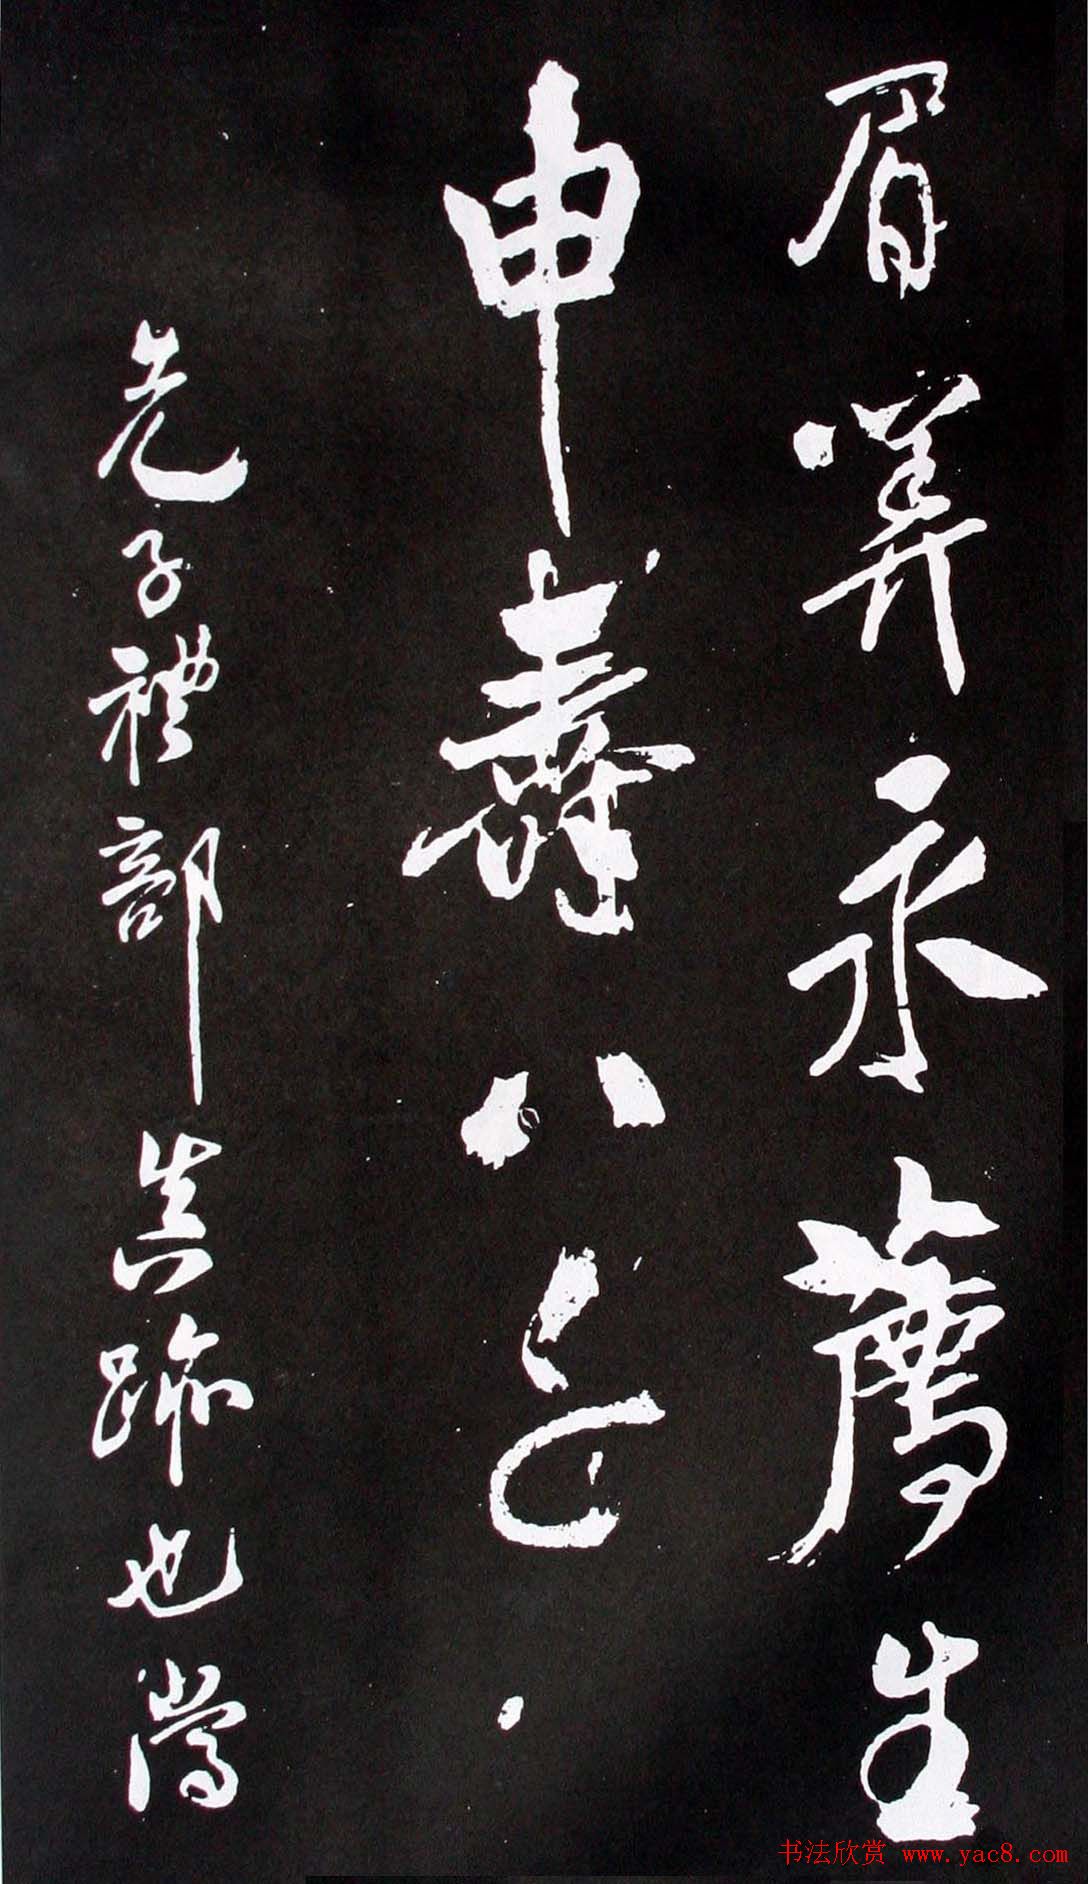 眉算永薦生
申壽八
先子禮部真跡也嘗
书法欣赏 www.yac8.com